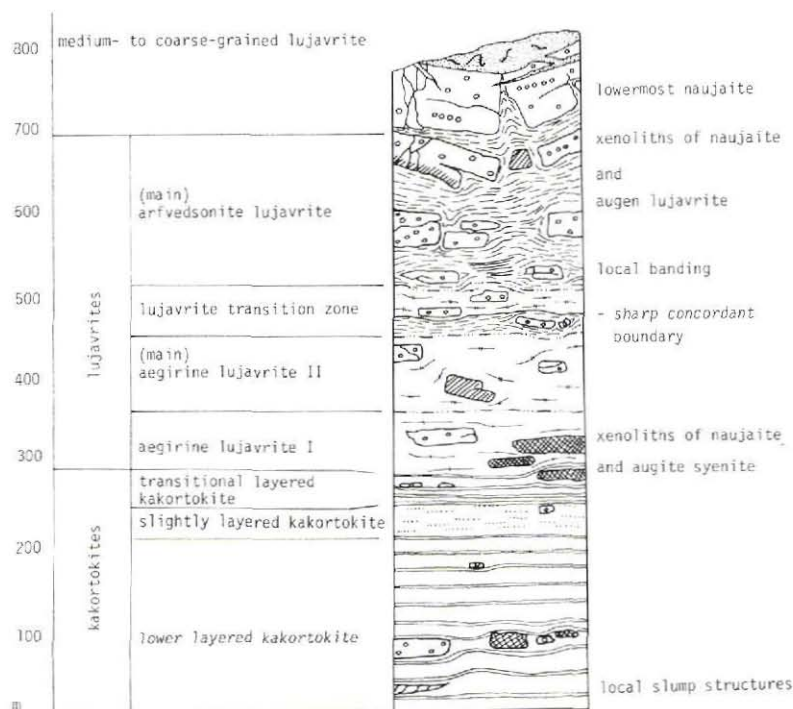 800
medium- to coarse-grained lujavrite
700
600
500
400
300
200
100
m
lujavrites
kakortokites
(main)
arfvedsonite lujavrite
lujavrite transition zone
(main)
aegirine lujavrite II
aegirine lujavrite I
transitional layered
kakortokite
slightly layered kakortokite
lower layered kakortokite
lowermost naujaite
xenoliths of naujaite
and
augen lujavrite
local banding
- sharp concordant
boundary
xenoliths of naujaite
and augite syenite
local slump structures